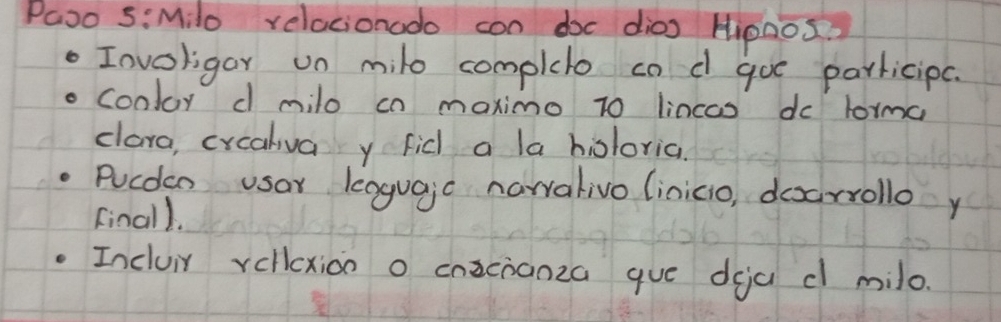 Paso 5: Mito relacionado con ese dios Hipnos.
• Investigar un mito completo en el que participe.
• Contar el mito en maximo 10 lineas de forma
clara, creativa y fiel a la historia.
• Pueden usar lenguaje narrativo (inicio, desarrollo y
final).
• Incluir reflexión o enseñanza que deja el mito.